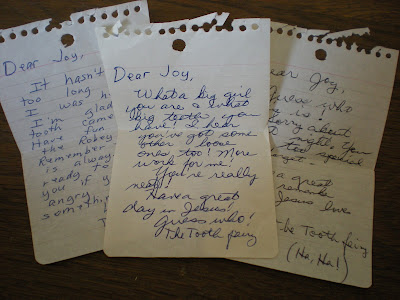 Dear Joy,
It hasn't
too long
I was h
I'm glad
tooth came
Have fun
the
Remember
is always
ready to
you if y
angry
someth
Dear Joy,
What a big girl
you are & what
big tooth you
have! I hear
you've got some
other loose
ones, too! More
work for me!
You're really
neat!
Have a great
day in Jesus!
Guess who!
The Tooth fairy
ear Joy,
who
is!
orry about
night. You
too special
get.
a great
Jesus loves
he Tooth fairy
(Ha, Ha!)